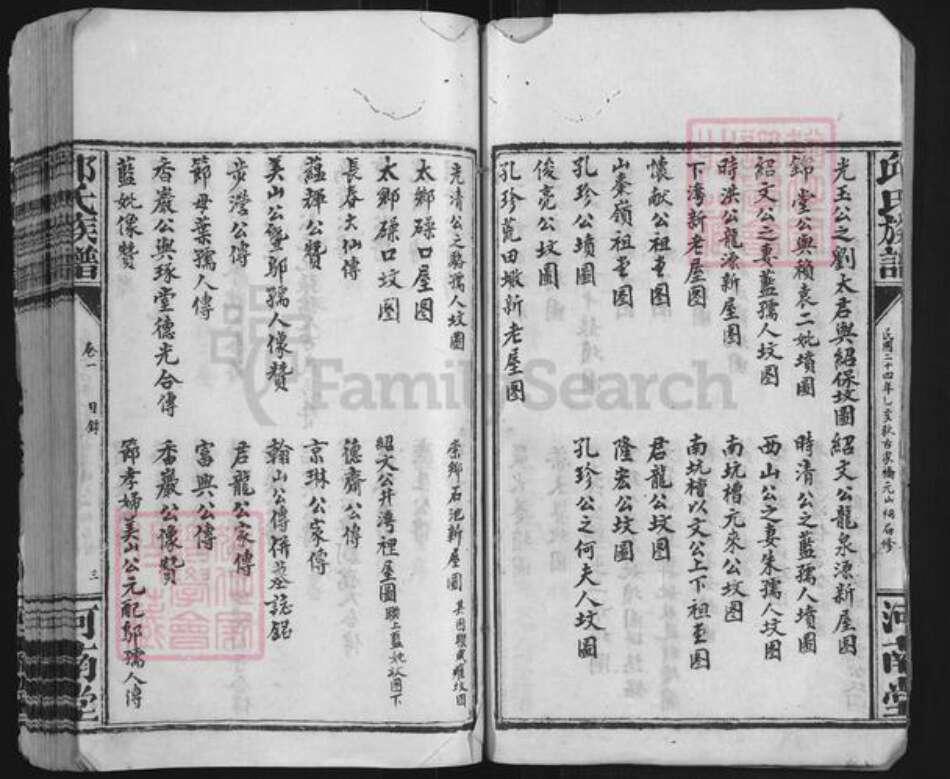 邱氏族譜
民國二十四年乙亥秋
河南堂
光玉公之劉太君與紹保坟圖
紹文公龍泉源新屋圖
錦堂公與賴袁二妣墳圖
時清公之藍孺人墳圖
紹文公之妻藍孺人坟圖
西山公之妻朱孺人坟圖
時洪公龍源新屋圖
南坑槽元來公坟圖
下湾新老屋图
南坑槽以文公上下祖堂图
懷献公祖堂图
君龍公坟图
山秦嶺祖堂图
隆宏公坟圖
孔珍公墳圖
孔珍公之何夫人坟圖
俊亮公坟圖
孔珍苑田墩新老屋图
光清公之駱孺人坟圖
崇鄉石池新屋圖
太鄉磜口屋图
紹文公井湾裡屋圖
太鄉磜口坟图
德齋公傳
長春大仙傳
京琳公家傳
蘊輝公贊
翰山公傳併墓誌銘
美山公暨鄔孺人像贊
君龍公家傳
步瀅公傳
富興公傳
節母葉孺人傳
香巖公像贊
香巖公與琢堂德光合傳
節孝婦美山公元配鄔孺人傳
藍妣像贊
邱氏族譜
卷一
目錄
三
河南堂
FamilySearch